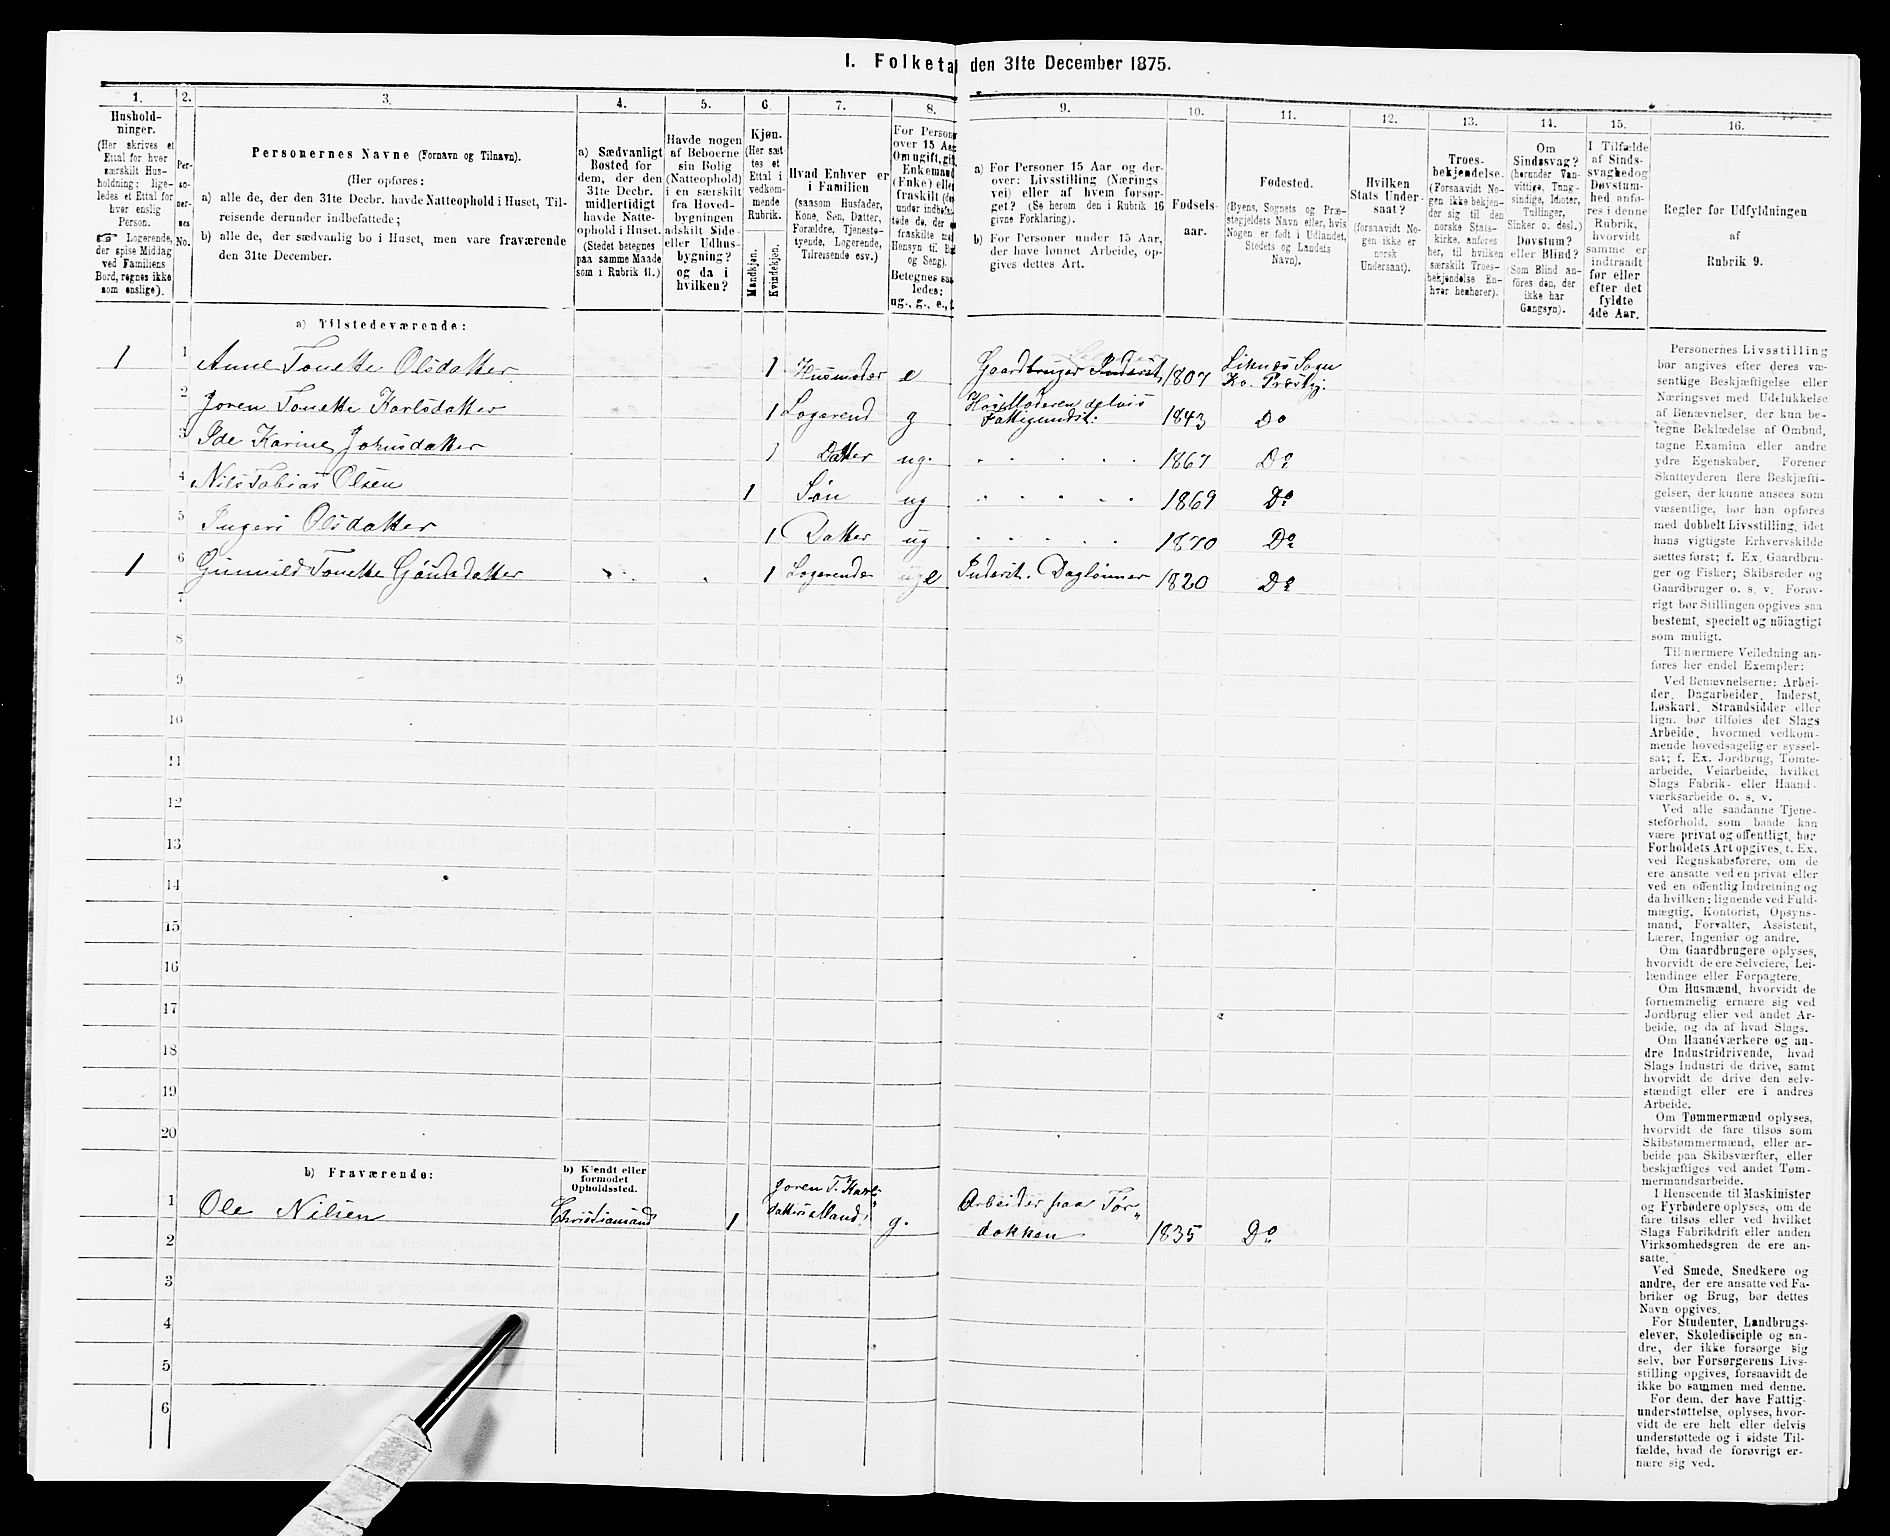 I. Folketal den 31te December 1875.
1. 2. 3. 4. 5. 6. 7. 8. 9. 10. 11. 12. 13. 14. 15. 16.
Hushold-
ninger.
(Her skrives et
Ettal for hver
særskilt Hus-
holdning; lige-
ledes et Ettal for
hver enslig
Person.
Logerende,
der spise Middag
ved Familiens
Bord, regnes ikke
som enslige).
Per-
so-
ner-
nes
No.
Personernes Navne (Fornavn og Tilnavn).
(Her opføres:
a) alle de, der den 31te Decbr. havde Natteophold i Huset, Til-
reisende derunder indbefattede;
b) alle de, der sædvanlig bo i Huset, men vare fraværende
den 31te December.
a) Sædvanligt
Bosted for
dem, der den
31te Decbr.
midlertidigt
havde Natte-
ophold i Huset.
(Stedet betegnes
paa samme Maade
som i Rubrik 11.)
Havde nogen
af Beboerne
sin Bolig
(Natteophold)
i en særskilt
fra Hoved-
bygningen
adskilt Side-
eller Udhus-
bygning?
og da i
hvilken?
Kjøn.
(Her sæt
tes et
Ettal i
vedkom-
mende
Rubrik.
Mandkjøn.
Kvindekjøn.
Hvad Enhver er
i Familien
(saasom Husfader,
Kone, Søn, Datter,
Forældre, Tjeneste-
tyende, Logerende,
Tilreisende osv.)
For Person
over 15 Aa
Om ugift, gift
Enkemand
(Enke) elle
fraskilt (de
under indbefat
tede de, der
fraskilte me
Hensyn til B
og Seng).
Betegnes saa
ledes:
ug., g., e., f.
a) For Personer 15 Aar og der-
over: Livsstilling (Nærings
vei) eller af hvem forsør-
get? (Se herom den i Rubrik 16
givne Forklaring).
b) For Personer under 15 Aar,
der have lønnet Arbeide, op-
gives dettes Art.
Fødsels-
aar.
Fødested.
(Byens, Sognets og Præ-
stegjeldets Navn eller, hvis
Nogen er født i Udlandet,
Stedets og Landets
Navn).
Hvilken
Stats Under-
saat?
(forsaavidt No-
gen ikke er
norsk
Undersaat).
Troes-
bekjendelse.
(Forsaavidt No-
gen ikke bekjen-
der sig til den
norske Stats-
kirke, anføres
her, til hvilken
særskilt Troes-
bekjendelse En-
hver henhører).
Om
Sindssvag?
(herunder Van-
vittige, Tung-
sindige, Idioter,
Tullinger,
Sinker o. desl.)
Døvstum?
eller Blind?
(Som Blind an-
føres den, der
ikke har
Gangsyn).
I Tilfælde
af Sinds-
svaghed og
Døvstum-
hed anfø-
res i denne
Rubrik,
hvorvidt
samme er
indtraadt
før eller
efter det
fyldte
4de Aar.
Regler for Udfyldningen
af
Rubrik 9.
a) Tilstedeværende:
1 1 Anne Tonette Olsdatter 1 Husmoder e Gaardbruger Inderst 1807 Liknes Sogn
Kv. Præstgj.
2 Joren Tonette Karlsdatter 1 Logerend g Hos Moderen delvis
Fattigundst: 1843 Do
3 Ide Karine Johnsdatter 1 Datter ug. " " " " " 1867 Do
4 Nils Tobias Olsen 1 Søn ug " " " " " 1869 Do
5 Ingeri Olsdatter 1 Datter ug " " " " " 1870 Do
1 6 Gunvild Tonette Gøutsdatter 1 Logerende e Inderst. Daglønner 1820 Do
7
8
9
10
11
12
13
14
15
16
17
18
19
20
b) Fraværende:
b) Kjendt eller
formodet
Opholdssted.
1 Ole Nilsen Christiansand 1 Joren T. Karls
datters Mand g. Arbeider paa Tør-
dokken 1835 Do
2
3
4
5
6
Personernes Livsstilling
bør angives efter deres væ-
sentlige Beskjæftigelse eller
Næringsvei med Udelukkelse
af Benævnelser, der kun be-
tegne Beklædelse af Ombud,
tagne Examina eller andre
ydre Egenskaber. Forener
Skatteyderen flere Beskjæfti-
gelser, der kunne ansees som
væsentlige, bør han opføres
med dobbelt Livsstilling, idet
hans vigtigste Erhvervskilde
sættes først; f. Ex. Gaardbru-
ger og Fisker; Skibsreder og
Gaardbruger o. s. v. Forøv-
rigt bør Stillingen opgives saa
bestemt, specielt og nöiagtigt
som muligt.
Til nærmere Veiledning an-
føres her endel Exempler:
Ved Benævnelserne: Arbei-
der, Dagarbeider, Inderst,
Løskarl, Strandsidder eller
lign. bør tilføies det Slags
Arbeide, hvormed vedkom-
mende hovedsagelig er syssel-
sat; f. Ex. Jordbrug, Tomte-
arbeide, Veiarbeide, hvilket
Slags Fabrik- eller Haand-
værksarbeide o. s. v.
Ved alle saadanne Tjene-
steforhold, som baade kan
være privat og offentligt, bør
Forholdets Art opgives, f. Ex.
ved Regnskabsførere, om de
ere ansatte ved en privat eller
ved en offentlig Indretning og
da hvilken; lignende ved Fuld-
mægtig, Kontorist, Opsyns-
mand, Forvalter, Assistent,
Lærer, Ingeniør og andre.
Om Gaardbrugere oplyses,
hvorvidt de ere Selveiere, Lei-
lændinge eller Forpagtere.
Om Husmænd, hvorvidt de
fornemmelig ernære sig ved
Jordbrug eller ved andet Ar-
beide, og da af hvad Slags.
Om Haandværkere og an-
dre Industridrivende, hvad
Slags Industri de drive, samt
hvorvidt de drive den selv-
stændigt eller ere i andres
Arbeide.
Om Tømmermænd oplyses,
hvorvidt de fare tilsøs som
Skibstømmermænd, eller ar-
beide paa Skibsværfter, eller
beskjæftiges ved andet Tøm-
mermandsarbeide.
I Henseende til Maskinister
og Fyrbødere oplyses, om de
fare tilsøs eller ved hvilket
Slags Fabrikdrift eller anden
Virksomhedsgren de ere an-
satte.
Ved Smede, Snedkere og
andre, der ere ansatte ved Fa-
briker og Brug, bør dettes
Navn opgives.
For Studenter, Landbrugs-
elever, Skoledisciple og an-
dre, der ikke forsørge sig
selv, bør Forsørgerens Livs-
stilling opgives, forsaavidt de
ikke bo sammen med denne.
For dem, der have Fattig-
understøttelse, oplyses, hvor-
vidt de ere helt eller delvis
understøttede og i sidste Til-
fælde, hvad de forøvrigt er-
nære sig ved.